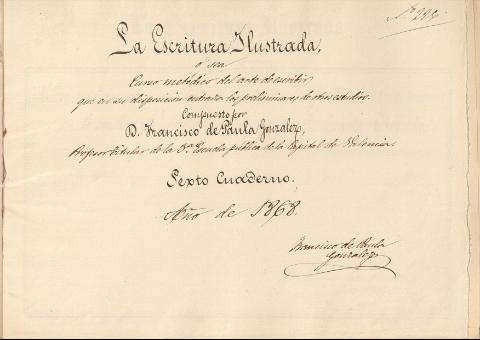 La Escritura Ilustrada,
ó sea
Curso metódico del arte de escribir
que en su disposición entraña los preliminares de otros estudios.
Compuesto por
D. Francisco de Paula Gonzalez,
Profesor titular de la 3ª Escuela pública de la Capital de Valencia.
Sexto Cuaderno.
Año de 1868.
Francisco de Paula
Gonzalez